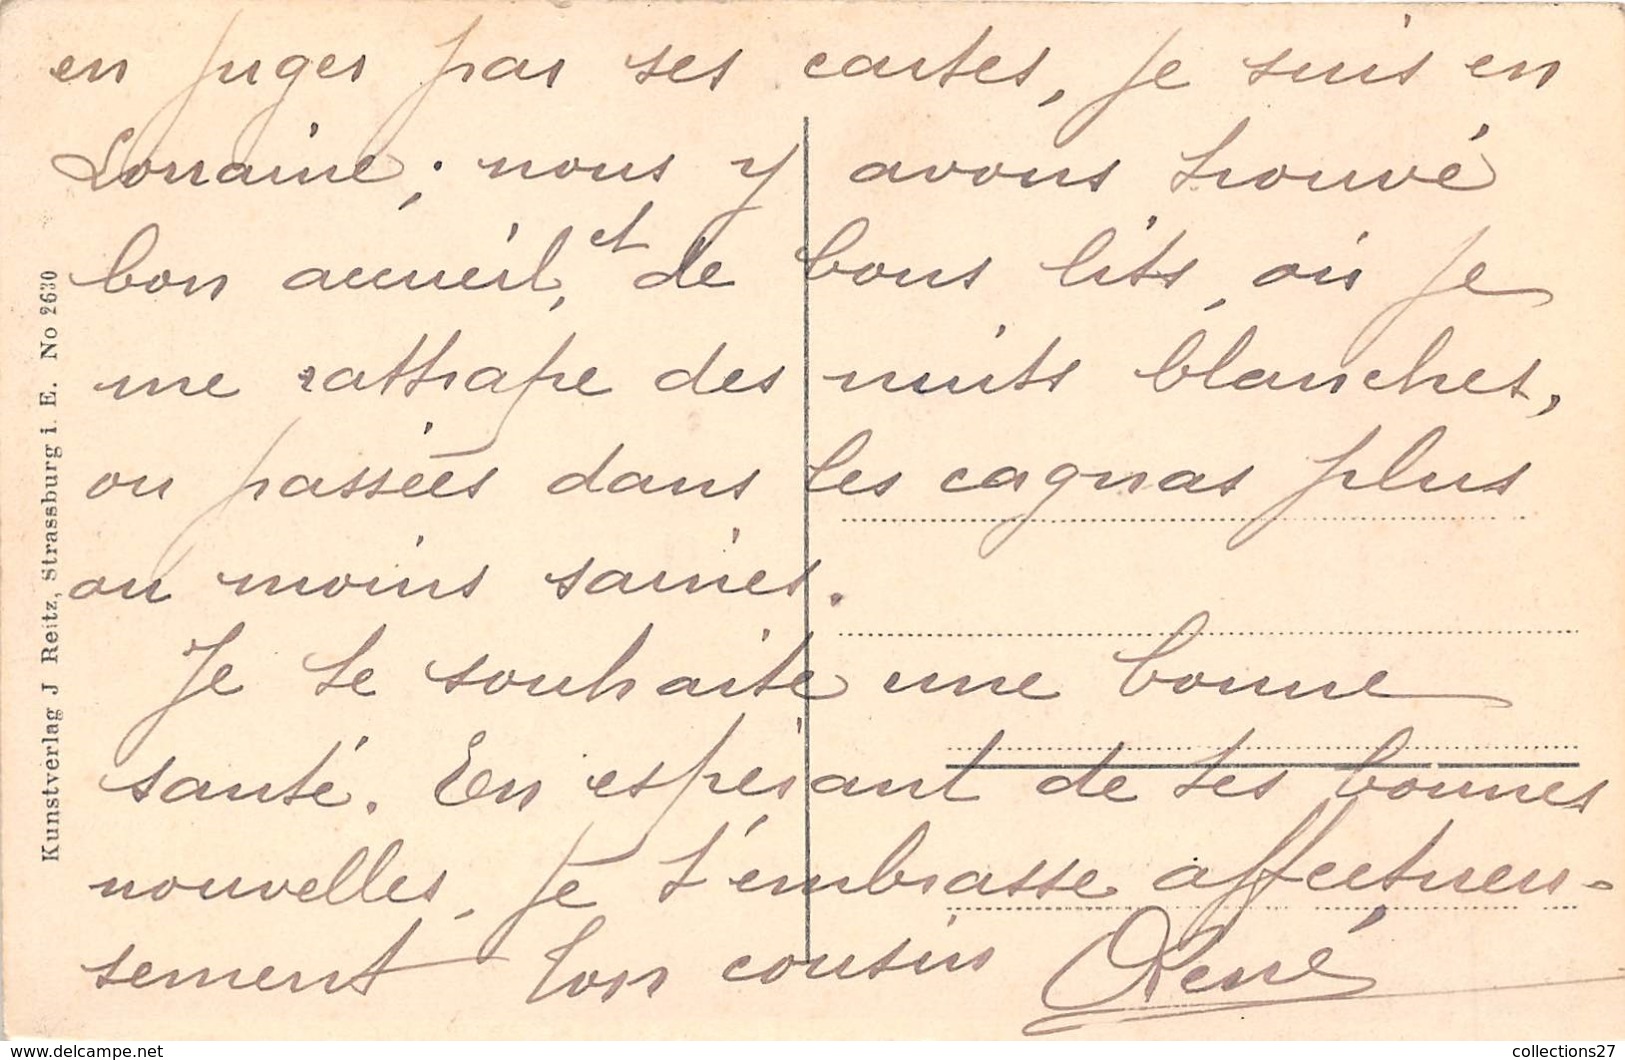 en juger par ses cartes, je suis en
Lorraine ; nous y avons trouvé
bon accueil, et de bons lits, où je
me rattrape des nuits blanches,
ou passées dans les cagnas plus
ou moins saines.
Je te souhaite une bonne
santé. En espérant de tes bonnes
nouvelles, je t'embrasse affectueu-
sement Ton cousin René
Kunstverlag J Reitz, Strassburg i. E. No 2630
collections27